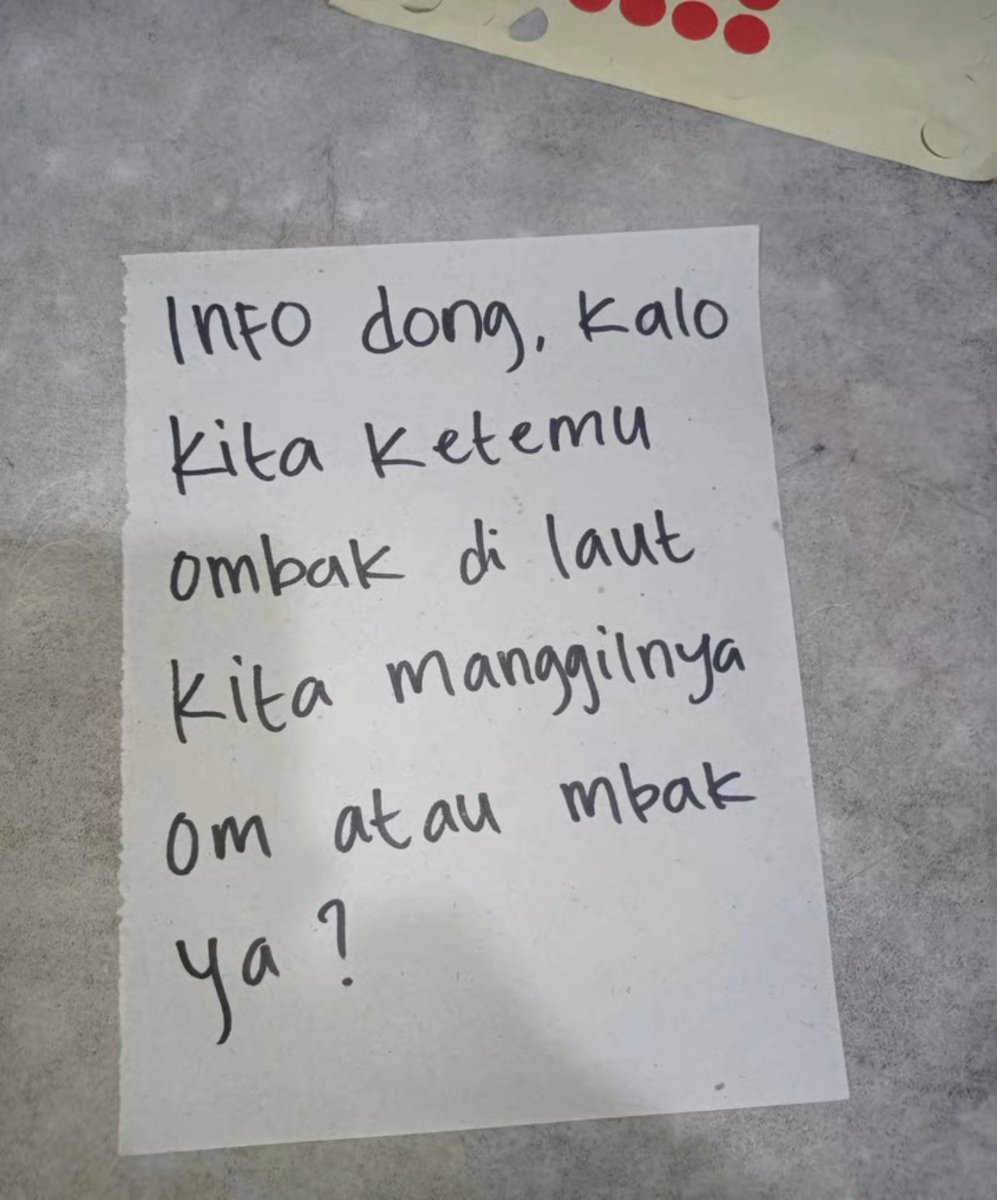 Info dong, kalo
kita ketemu
ombak di laut
kita manggilnya
om atau mbak
ya ?